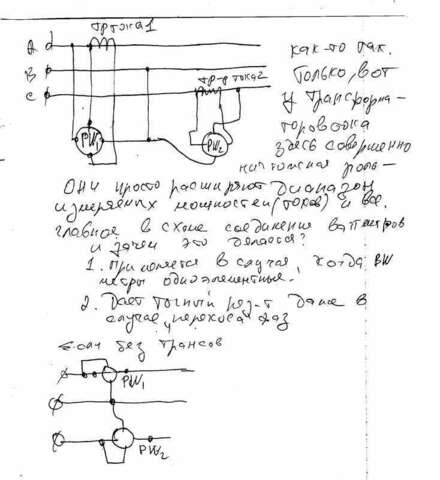 тр тока 1
А
В
С
тр-р тока 2
PW1
PW2
как-то так.
Только, вот
у трансформа-
торов тока
здесь совершенно
ничтожная роль -
Они просто расширяют диапазон
измеряемых мощностей (токов) и все.
главное в схеме соединения ваттметров
и зачем это делается?
1. Применяется в случая, когда вт
метры одноэлементные.
2. Дает точный рез-т даже в
случае, перекоса фаз
Если без трансов
PW1
PW2